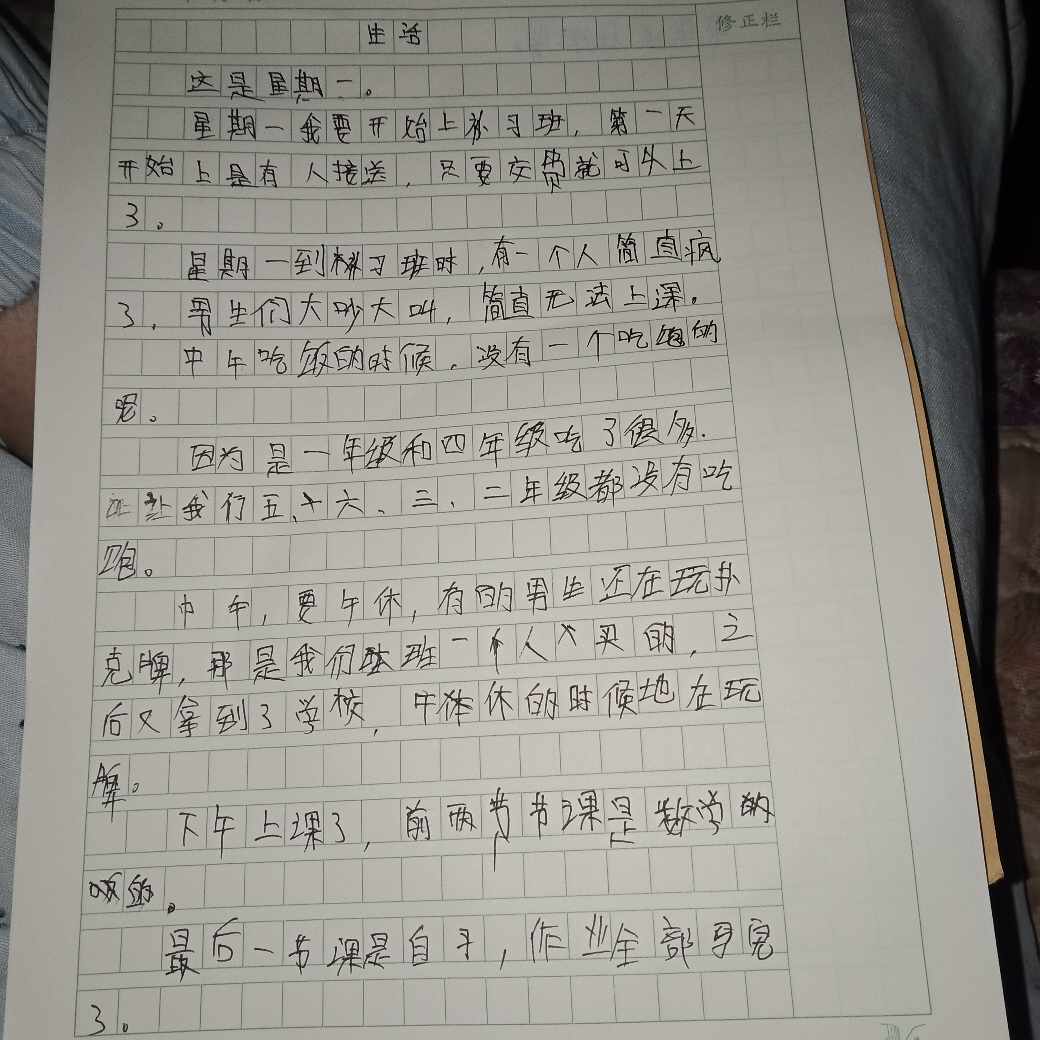 生活
修正栏
这是星期一。
星期一我要开始上补习班，第一天
开始上是有人接送，只要交费就可以上
了。
星期一到补习班时，有一个人简直疯
了，男生们大吵大叫，简直无法上课。
中午吃饭的时候，没有一个吃饱的
呢。
因为是一年级和四年级吃了很多.
我们五、六、三、二年级都没有吃
饱。
中午，要午休，有的男生还在玩扑
克牌，那是我们班一个人买的，之
后又拿到了学校，午休的时候他在玩
牌。
下午上课了，前两节课是数学的
最后一节课是自习，作业全部写完
了。